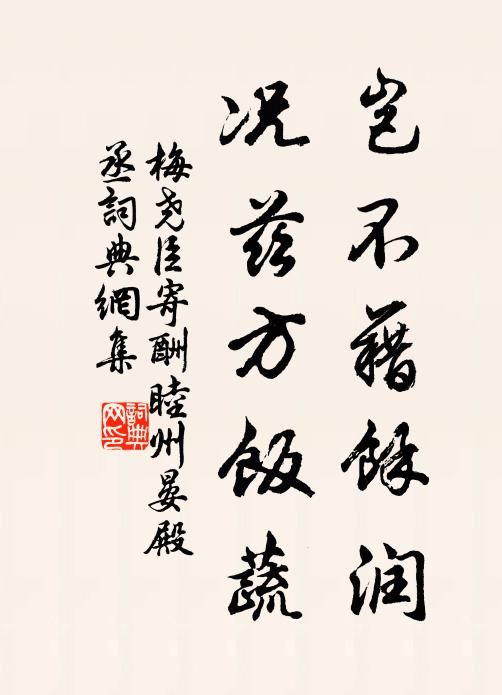 岂不藉馀润
况兹方饭蔬
梅尧臣寄酬睦州晏殿
丞词典網集
詞典
网印